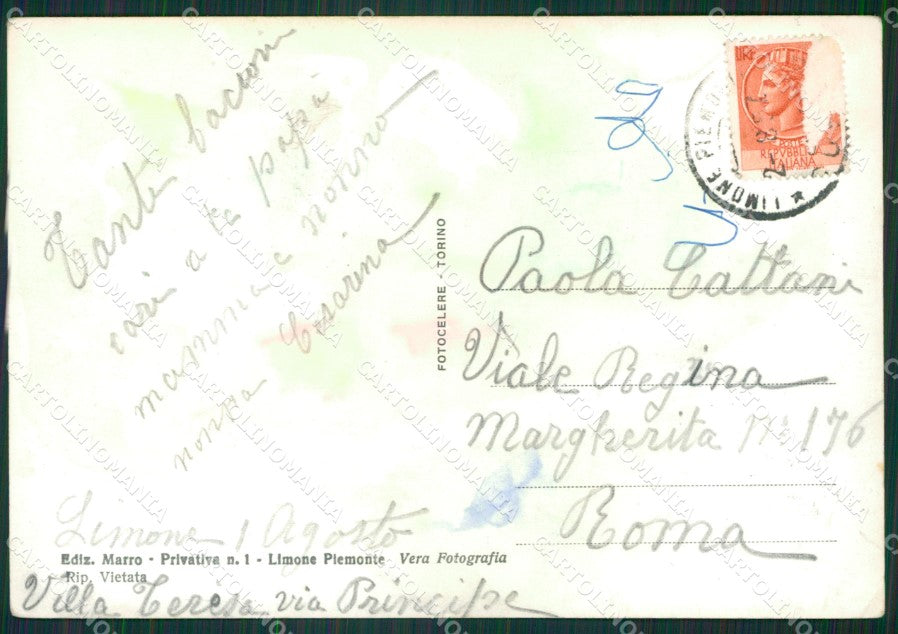 Tanti bacioni
cari a te papà
mamma e nonno
nonna Cesarina
Limone 1 Agosto
Ediz. Marro - Privativa n. 1 - Limone Piemonte Vera Fotografia
Rip. Vietata
Villa Teresa via Principe
FOTOCELERE - TORINO
LIMONE PIEMO
POSTE
REPVBBLICA
ITALIANA
Paola Cattani
Viale Regina
Margherita N. 176
Roma
CARTOLINOMANIA